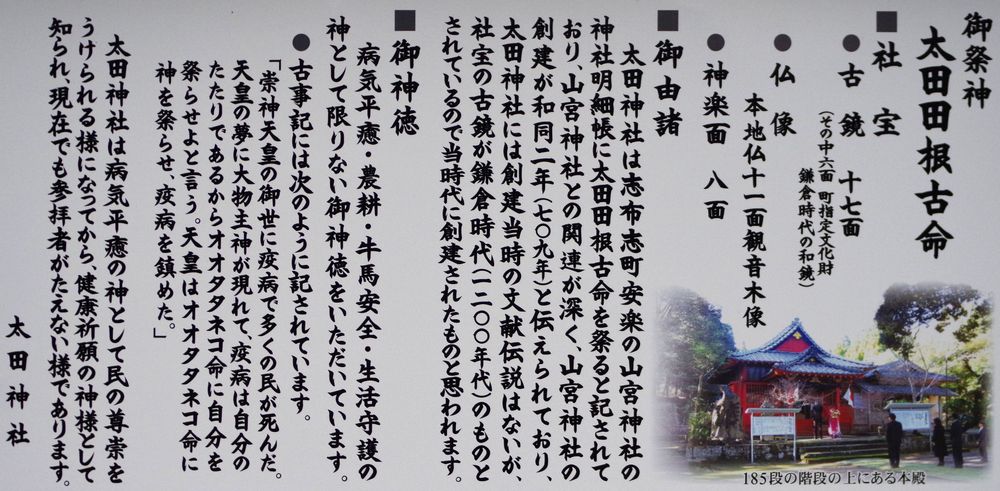 御祭神
太田田根古命
■社宝
●古鏡 十七面
(その中六面 町指定文化財
鎌倉時代の和鏡)
●仏像
本地仏十一面観音木像
●神楽面 八面
■御由諸
太田神社は志布志町安楽の山宮神社の
神社明細帳に太田田根古命を祭ると記されて
おり、山宮神社との関連が深く、山宮神社の
創建が和同二年(七〇九年)と伝えられており、
太田神社には創建当時の文献伝説はないが、
社宝の古鏡が鎌倉時代(一二〇〇年代)のものと
されているので当時代に創建されたものと思われます。
■御神徳
病気平癒・農耕・牛馬安全・生活守護の
神として限りない御神徳をいただいています。
●古事記には次のように記されています。
「崇神天皇の御世に疫病で多くの民が死んだ。
天皇の夢に大物主神が現れて、疫病は自分の
たたりであるからオオタタネコ命に自分を
祭らせよと言う。天皇はオオタタネコ命に
神を祭らせ、疫病を鎮めた。」
太田神社は病気平癒の神として民の尊崇を
うけられる様になってから、健康祈願の神様として
知られ、現在でも参拝者がたえない様であります。
太田神社
185段の階段の上にある本殿